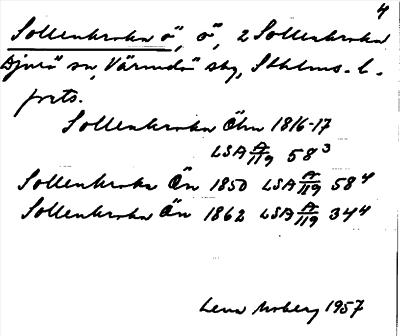 4
Sollenkroka ö, ö, 2 Sollenkroka
Djurö sn, Värmdö skg, Sthlms. l.
forts.
Sollenkroka Öhn 1816-17
LSA A/119 58³
Sollenkroka Ön 1850 LSA A/119 58⁴
Sollenkroka Ön 1862 LSA A/119 34⁴
Lena Moberg 1957